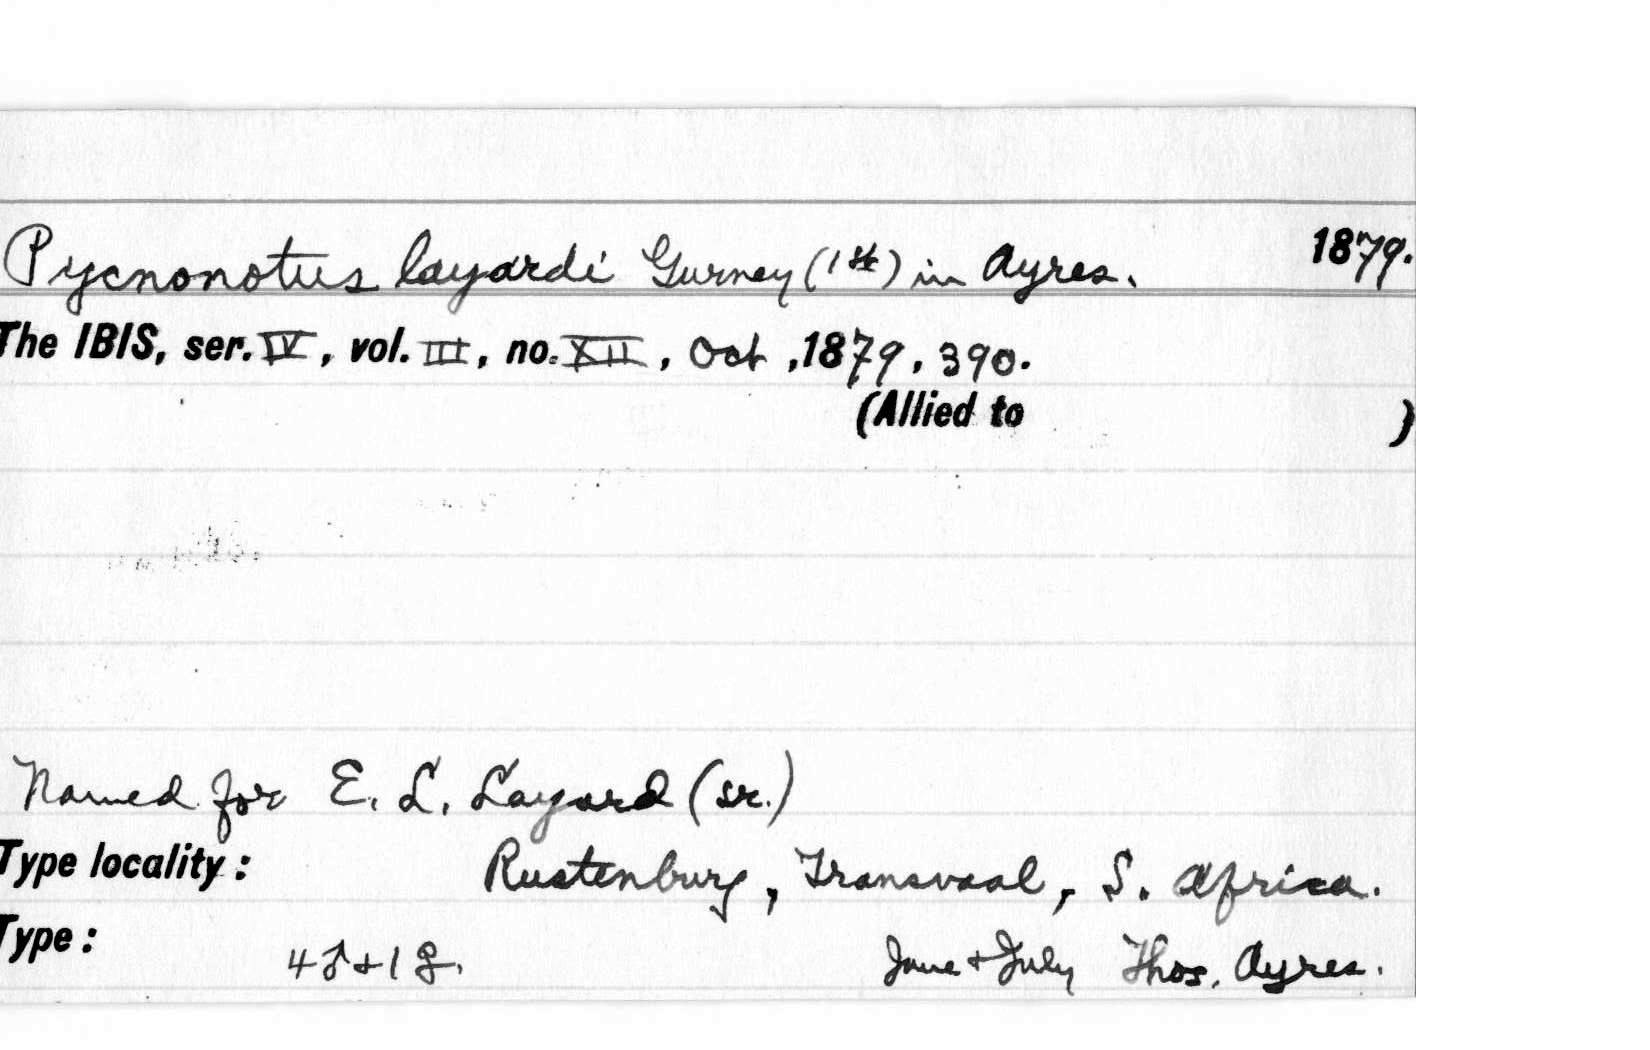 Pycnonotus layardi Gurney (1st) in Ayres. 1879.
The IBIS, ser. IV, vol. III, no. XII, Oct, 1879, 390.
(Allied to )
Named for E. L. Layard (sr.)
Type locality: Rustenburg, Transvaal, S. Africa.
Type: 4♂+1♀. June + July Thos. Ayres.